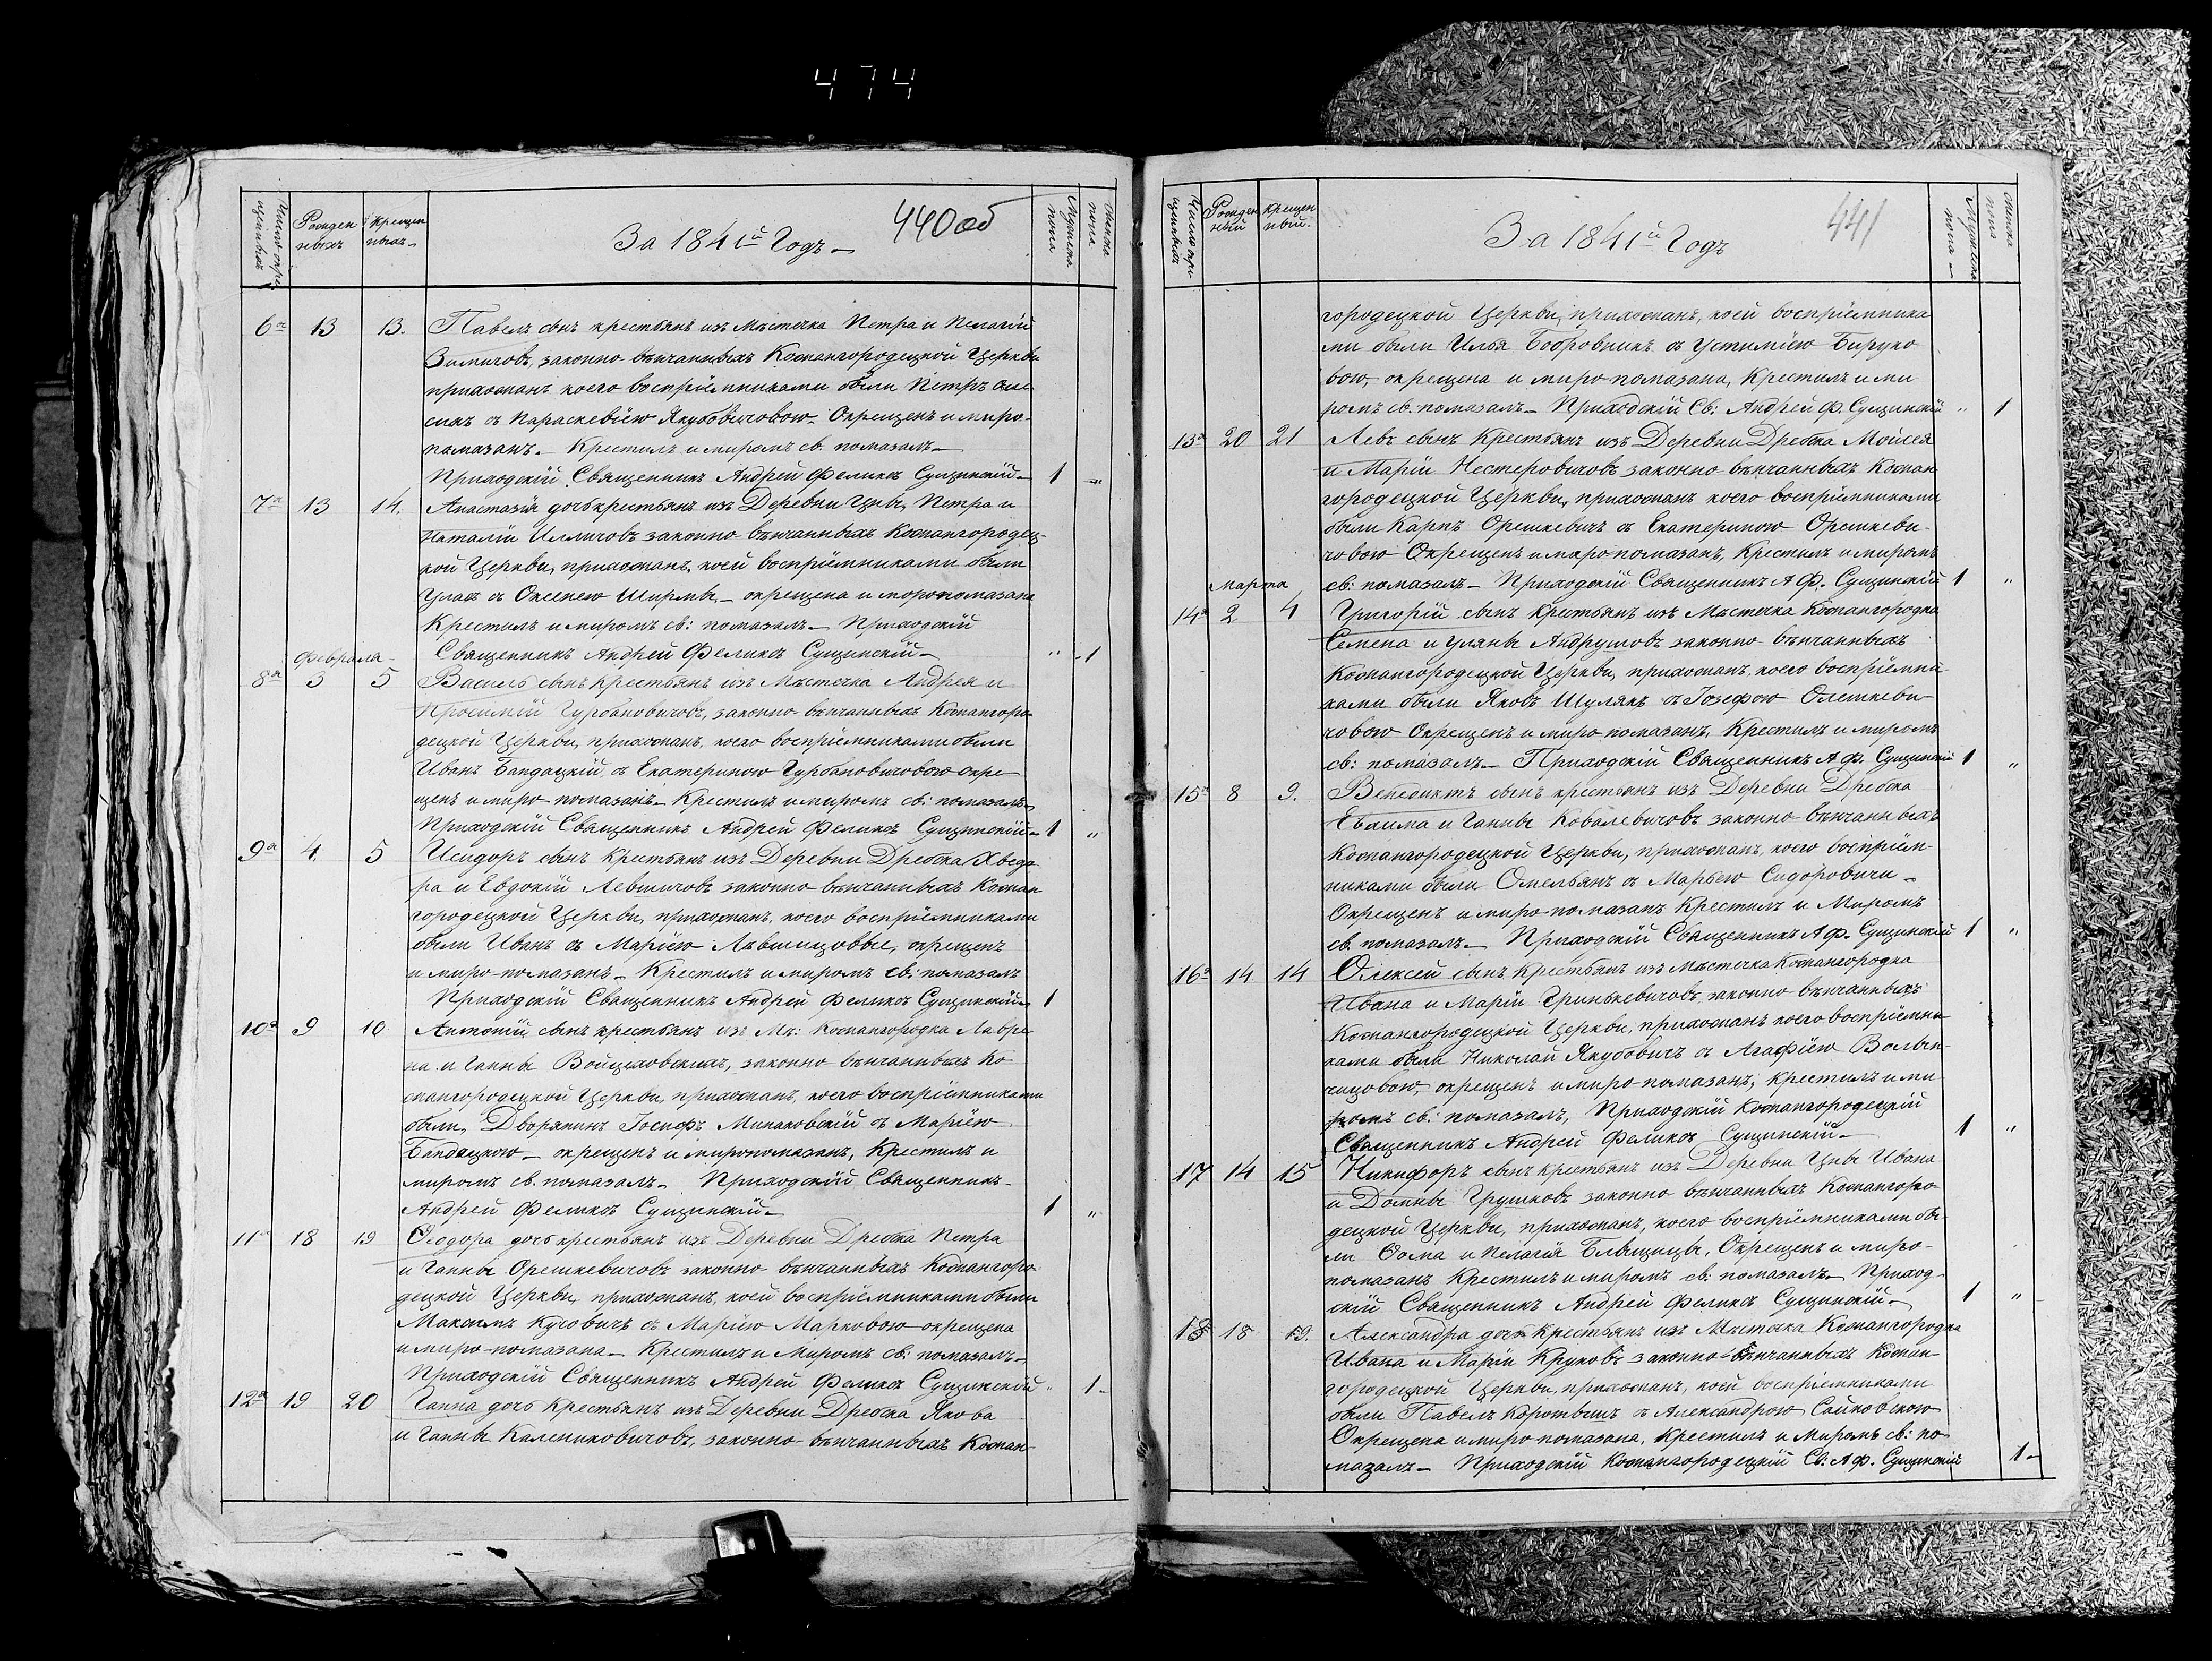 474
Число окре
щенныхъ
Рожден
ныхъ
Крещен
ныхъ
За 1841й Годъ
440об
Мужеска
пола
Женска
пола
6а 13 13. Павелъ сынъ крестьянъ изъ Мѣстечка Петра и Пелагіи
Зимичовъ, законно-вѣнчанныхъ Кожангородецкой Церкви
прихожанъ коего воспріемниками были Петръ Оме
сикъ съ Параскевіею Якубовичовою. Окрещенъ и миро-
помазанъ. Крестилъ и миромъ св. помазалъ
Приходскій Священникъ Андрей Феликсъ Сущинскій 1 "
7а 13 14. Анастазія дочь крестьянъ изъ Деревни Цны, Петра и
Наталіи Илличовъ законно вѣнчанныхъ Кожангородец-
кой Церкви, прихожанъ, коей воспріемниками были
Улас съ Оксенею Ширмы, окрещена и моропомазана
Крестилъ и миромъ св: помазалъ Приходскій
Священникъ Андрей Феликсъ Сущинскій " 1
Февраля
8а 3 5 Василь сынъ крестьянъ изъ Мѣстечка Андрея и
Просимій Гурбановичовъ, законно-вѣнчанныхъ Кожангоро
децкой Церкви, прихожанъ, коего воспріемниками были
Иванъ Бандацкій съ Екатериною Гурбановичовою окре
щенъ и миро помазанъ. Крестилъ и миромъ св: помазалъ
Приходскій Священникъ Андрей Феликсъ Сущинскій 1 "
9а 4 5 Исидоръ сынъ крестьянъ изъ Деревни Дребска Хведо
ра и Евдокіи Левшичовъ законно вѣнчанныхъ Кожан
городецкой Церкви, прихожанъ, коего воспріемниками
были Иванъ съ Маріею Лѣвшицовые, окрещенъ
и миро-помазанъ. Крестилъ и миромъ св: помазалъ
Приходскій Священникъ Андрей Феликсъ Сущинскій 1
10а 9 10 Антоній сынъ крестьянъ изъ Мѣ: Кожангородка Лавре
на и Ганны Войцеховскихъ, законно вѣнчанныхъ Ко
жангородецкой Церкви, прихожанъ, коего воспріемниками
были, Дворянинъ Іосифъ Минаковскій съ Маріею
Бандацкою окрещенъ и миропомазанъ, Крестилъ и
миромъ св. помазалъ. Приходскій Священникъ
Андрей Феликсъ Сущинскій 1 "
11а 18 19 Ѳеодора дочь крестьянъ изъ Деревни Дребска Петра
и Ганны Орешкевичовъ законно-вѣнчанныхъ Кожангоро
децкой Церкви, прихожанъ, коей воспріемниками были
Максимъ Куковичъ съ Маріею Марковою окрещена
и миро-помазана. Крестилъ и Миромъ св: помазалъ
Приходскій Священникъ Андрей Феликсъ Сущинскій " 1
12а 19 20 Ганна дочь Крестьянъ изъ Деревни Дребска Якова
и Ганны Калениковичовъ, законно-вѣнчанныхъ Кожан-
Число окре
щенныхъ
Рожден
ный
Крещен
ный
За 1841й Годъ
441
Мужеска
пола
Женска
пола
городецкой Церкви, прихожанъ, коей воспріемника
ми были Илья Бобровникъ съ Устиміею Бируко
вою, окрещена и миро помазана, Крестилъ и ми
ромъ св. помазалъ. Приходскій Св: Андрей Ф. Сущинскій " 1
13а 20 21 Левъ сынъ Крестьянъ изъ Деревни Дребска Мойсея
и Маріи Нестеровичовъ законно вѣнчанныхъ Кожан
городецкой Церкви, прихожанъ коего воспріемниками
были Карпъ Орешкевичъ съ Екатериною Орешкеви
човою Окрещенъ и миро помазанъ, Крестилъ и миромъ
св: помазалъ Приходскій Священникъ А Ф. Сущинскій 1 "
Марта
14а 2 4 Григорій сынъ Крестьянъ изъ Мѣстечка Кожангородка
Семена и Уляны Андрушовъ законно-вѣнчанныхъ
Кожангородецкой Церкви, прихожанъ, коего воспріемни
ками были Яковъ Шулякъ съ Іозефою Олешкеви
човою Окрещенъ и миро помазанъ, Крестилъ и миромъ
св: помазалъ Приходскій Священникъ А Ф. Сущинскій 1 "
15а 8 9. Венедиктъ сынъ крестьянъ изъ Деревни Дребска
Евхима и Ганны Ковалевичовъ законно-вѣнчанныхъ
Кожангородецкой Церкви, прихожанъ, коего воспріем-
никами были Омельянъ съ Марьею Сидоровичи
Окрещенъ и миро помазанъ Крестилъ и Миромъ
св. помазалъ Приходскій Священникъ А Ф. Сущинскій 1 "
16а 14 14 Олексей сынъ Крестьянъ изъ Мѣстечка Кожангородка
Ивана и Маріи Гринкевичовъ, законно вѣнчанныхъ
Кожангородецкой Церкви, прихожанъ коего воспріемни
ками были Николай Якубовичъ съ Агафіею Волын-
чицовою, окрещенъ и миро-помазанъ, крестилъ и ми
ромъ св: помазалъ, Приходскій Кожангородецкій
Священникъ Андрей Феликсъ Сущинскій 1 "
17 14 15 Никифоръ сынъ крестьянъ изъ Деревни Цны Ивана
и Домны Грушковъ законно вѣнчанныхъ Кожангоро
децкой Церкви, прихожанъ, коего воспріемниками бы
ли Ѳома и Пелагія Блящицы, Окрещенъ и миро-
помазанъ Крестилъ и миромъ св: помазалъ Приход-
скій Священникъ Андрей Феликсъ Сущинскій 1 "
18 18 19. Александра дочь Крестьянъ изъ Мѣстечка Кожангородка
Ивана и Маріи Круковъ законно вѣнчанныхъ Кожан-
городецкой Церкви, прихожанъ, коей воспріемниками
были Павелъ Коротышъ съ Александрою Сайковскою
Окрещена и миро помазана, Крестилъ и Миромъ св: по
мазалъ Приходскій Кожангородецкій Св: А Ф. Сущинскій 1